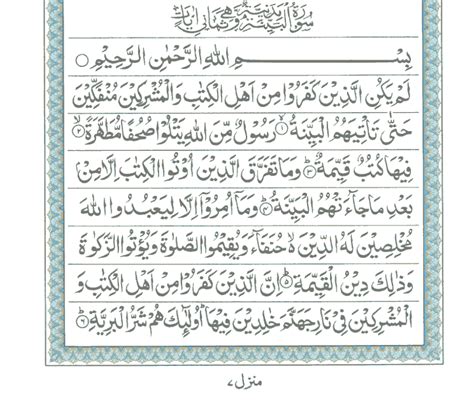 سُوْرَةُ الْبَيِّنَةِ مَدَنِيَّةٌ وَّهِيَ ثَمَانِيْ اٰيَاتٍ
بِسْمِ اللّٰهِ الرَّحْمٰنِ الرَّحِيْمِ
لَمْ يَكُنِ الَّذِيْنَ كَفَرُوْا مِنْ اَهْلِ الْكِتٰبِ وَالْمُشْرِكِيْنَ مُنْفَكِّيْنَ
حَتّٰى تَاْتِيَهُمُ الْبَيِّنَةُ ۙ۱ رَسُوْلٌ مِّنَ اللّٰهِ يَتْلُوْا صُحُفًا مُّطَهَّرَةً ۙ۲
فِيْهَا كُتُبٌ قَيِّمَةٌ ؕ۳ وَمَا تَفَرَّقَ الَّذِيْنَ اُوْتُوا الْكِتٰبَ اِلَّا مِنْۢ
بَعْدِ مَا جَآءَتْهُمُ الْبَيِّنَةُ ؕ۴ وَمَاۤ اُمِرُوْۤا اِلَّا لِيَعْبُدُوا اللّٰهَ
مُخْلِصِيْنَ لَهُ الدِّيْنَ ۙ۬ حُنَفَآءَ وَيُقِيْمُوا الصَّلٰوةَ وَيُؤْتُوا الزَّكٰوةَ
وَذٰلِكَ دِيْنُ الْقَيِّمَةِ ؕ۵ اِنَّ الَّذِيْنَ كَفَرُوْا مِنْ اَهْلِ الْكِتٰبِ وَ
الْمُشْرِكِيْنَ فِيْ نَارِ جَهَنَّمَ خٰلِدِيْنَ فِيْهَا ؕ اُولٰٓئِكَ هُمْ شَرُّ الْبَرِيَّةِ ؕ۶
منزل ۷